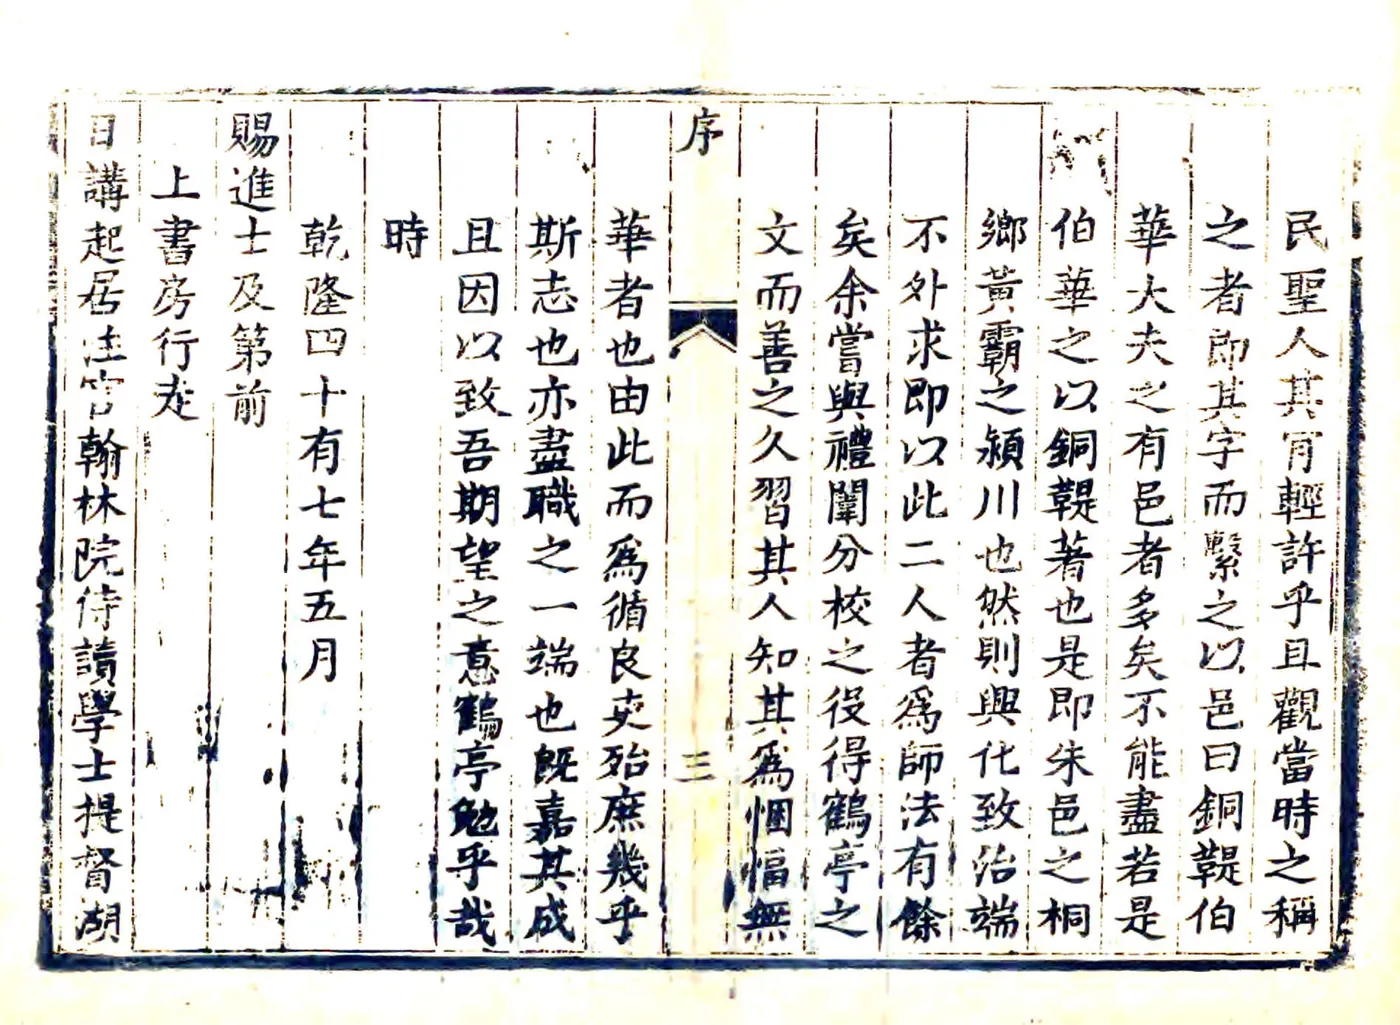 民聖人其肯輕許乎且觀當時之稱
之者即其字而繫之以邑曰銅鞮伯
華大夫之有邑者多矣不能盡若是
伯華之以銅鞮著也是即朱邑之桐
鄉黃霸之潁川也然則興化致治端
不外求即以此二人者爲師法有餘
矣余嘗與禮闈分校之役得鶴亭之
文而善之久習其人知其爲悃愊無
序
三
華者也由此而爲循良吏殆庶幾乎
斯志也亦盡職之一端也旣嘉其成
且因以致吾期望之意鶴亭勉乎哉
時
乾隆四十有七年五月
賜進士及第前
上書房行走
日講起居注官翰林院侍讀學士提督湖